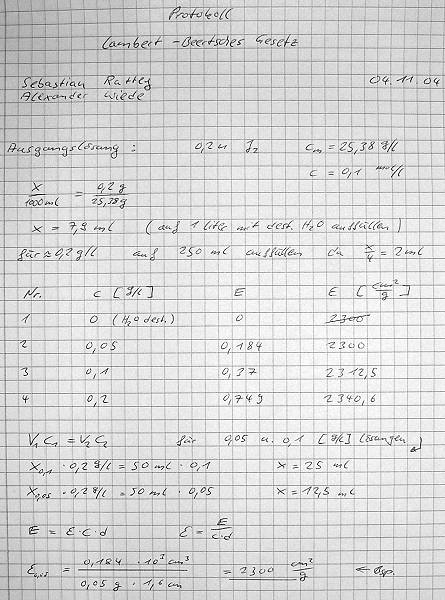 Protokoll
Lambert-Beersches Gesetz
Sebastian 04.11.04
Alexander Wiede
Ausgangslösung: 0,2 n J₂ cₘ = 25,38 g/l
c = 0,1 mol/l
x / 1000 ml = 0,2 g / 25,38 g
x = 7,9 ml (auf 1 Liter mit dest. H₂O auffüllen)
für ≈ 0,2 g/l auf 250 ml auffüllen da x/4 = 2 ml
Nr. c [g/l] E ε [cm²/g]
1 0 (H₂O dest.) 0 2300
2 0,05 0,184 2300
3 0,1 0,37 2312,5
4 0,2 0,749 2340,6
V₁C₁ = V₂C₂ für 0,05 u. 0,1 [g/l] Lösungen
X₀,₁ · 0,2 g/l = 50 ml · 0,1 x = 25 ml
X₀,₀₅ · 0,2 g/l = 50 ml · 0,05 x = 12,5 ml
E = ε · c · d ε = E / c·d
ε₀,₀₅ = 0,184 · 10³ cm³ / 0,05 g · 1,6 cm = 2300 cm²/g ← Bsp.